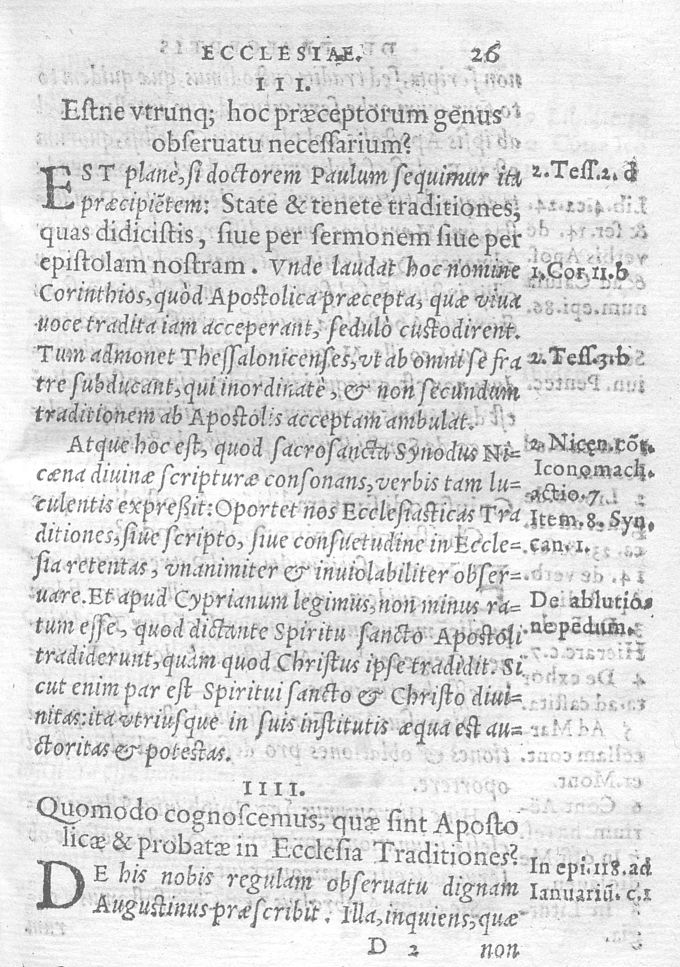 ECCLESIAE. 26
III.
Estne vtrunq; hoc præceptorum genus
obseruatu necessarium?
EST planè, si doctorem Paulum sequimur ita
præcipiẽtem: State & tenete traditiones,
quas didicistis, siue per sermonem siue per
epistolam nostram. Vnde laudat hoc nomine
Corinthios, quòd Apostolica præcepta, quæ viua
uoce tradita iam acceperant, sedulò custodirent.
Tum admonet Thessalonicenses, vt ab omni se fra
tre subducant, qui inordinatè, & non secundum
traditionem ab Apostolis acceptam ambulat.
Atque hoc est, quod sacrosancta Synodus Ni-
cæna diuinæ scripturæ consonans, verbis tam lu-
culentis expreßit: Oportet nos Ecclesiasticas Tra
ditiones, siue scripto, siue consuetudine in Eccle-
sia retentas, vnanimiter & inuiolabiliter obser-
uare. Et apud Cyprianum legimus, non minus ra-
tum esse, quod dictante Spiritu sancto Apostoli
tradiderunt, quàm quod Christus ipse tradidit. Si
cut enim par est Spiritui sancto & Christo diui-
nitas: ita vtriusque in suis institutis æqua est au-
ctoritas & potestas.
IIII.
Quomodo cognoscemus, quæ sint Aposto
licæ & probatæ in Ecclesia Traditiones?
DE his nobis regulam obseruatu dignam
Augustinus præscribit. Illa, inquiens, quæ
D 2 non
2. Tess. 2. d
1. Cor. 11. b
2. Tess. 3. b
2. Nicęn. cõt.
Iconomach.
actio. 7.
Item. 8. Syn.
can. 1.
De ablutio-
ne pedum.
In epi. 118. ad
Ianuariũ. c. 1